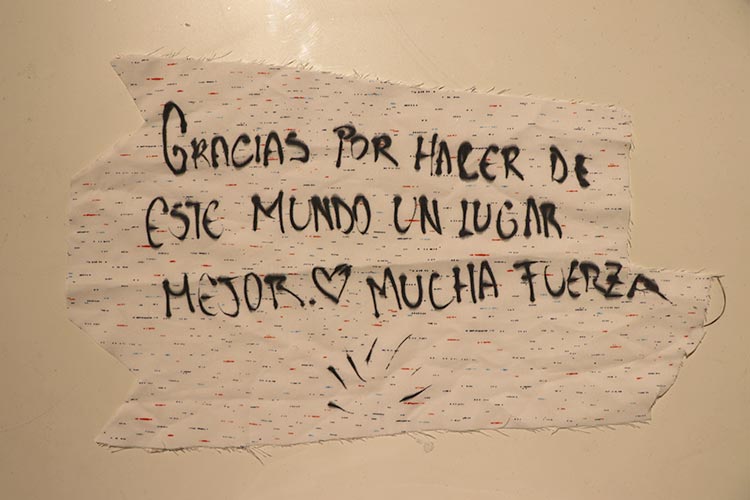 GRACIAS POR HACER DE
ESTE MUNDO UN LUGAR
MEJOR.♡ MUCHA FUERZA